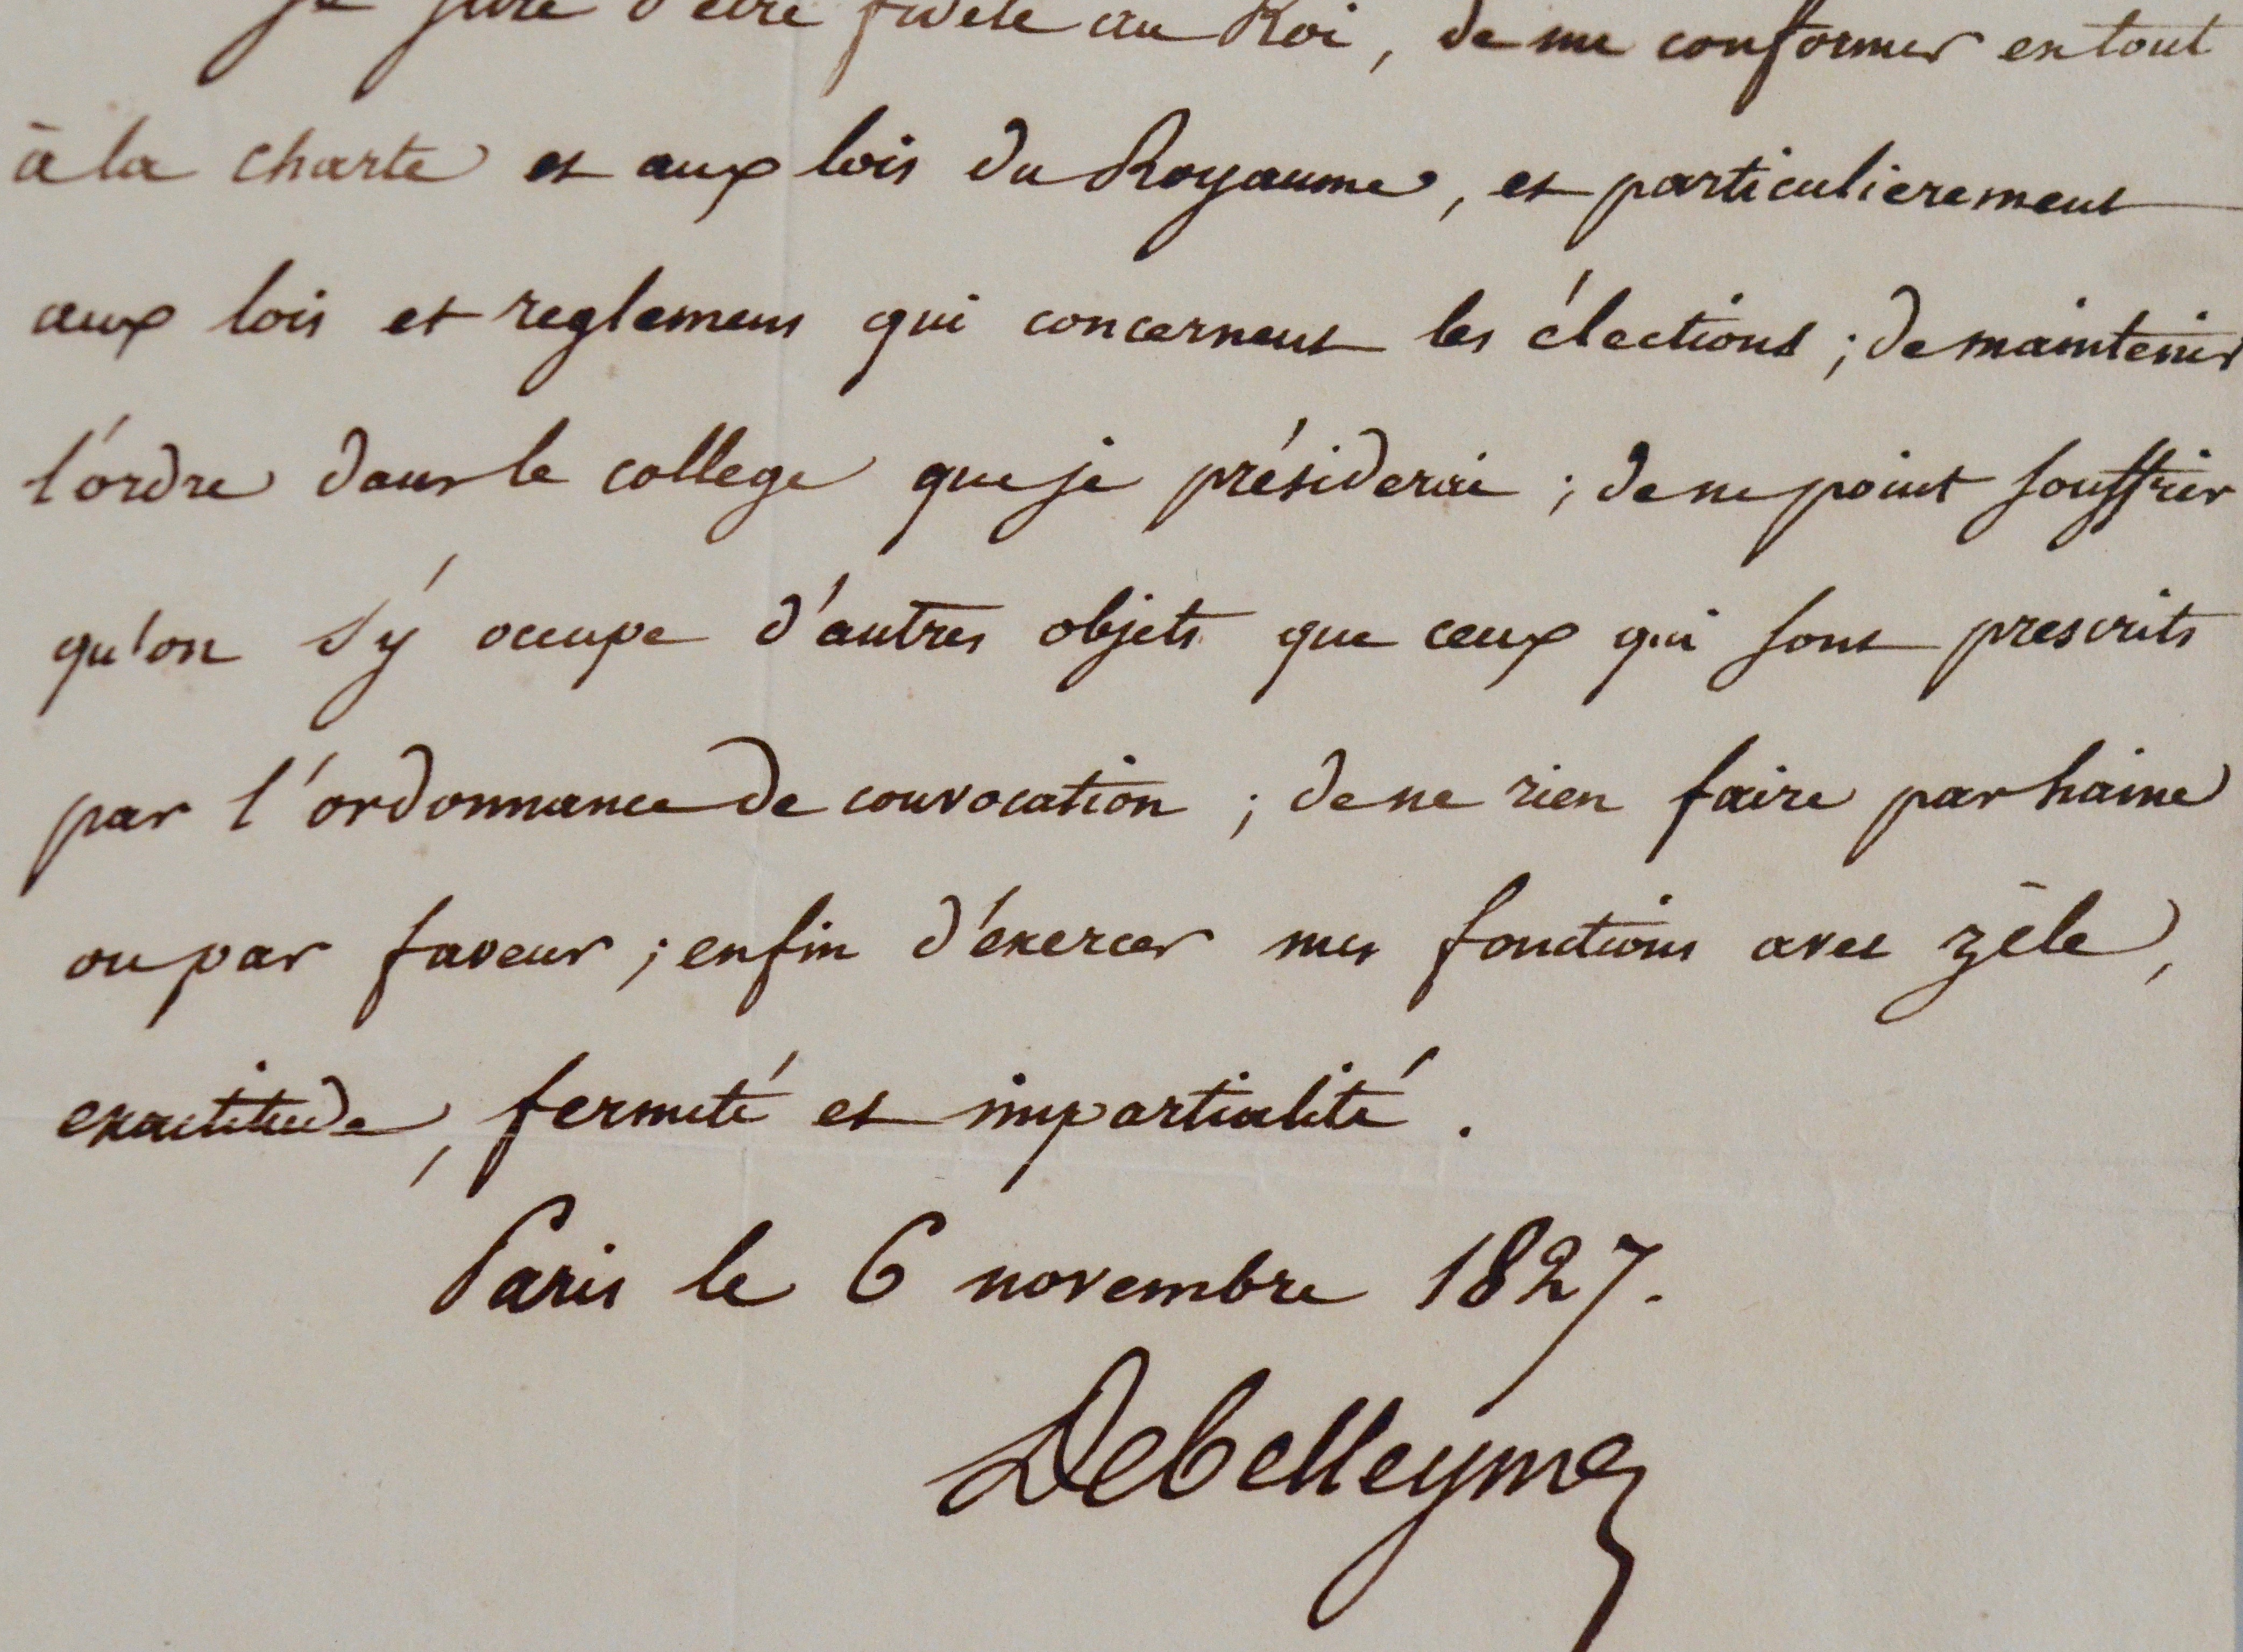 Je jure d'être fidele au Roi, de me conformer en tout
à la charte et aux lois du Royaume, et particulierement
aux lois et reglemens qui concernent les élections ; de maintenir
l'ordre dans le college que je présiderai ; de ne point souffrir
qu'on s'y occupe d'autres objets que ceux qui sont prescrits
par l'ordonnance de convocation ; de ne rien faire par haine
ou par faveur ; enfin d'éxercer mes fonctions avec zèle,
exactitude, fermeté et impartialité.
Paris le 6 novembre 1827.
Debelleyme